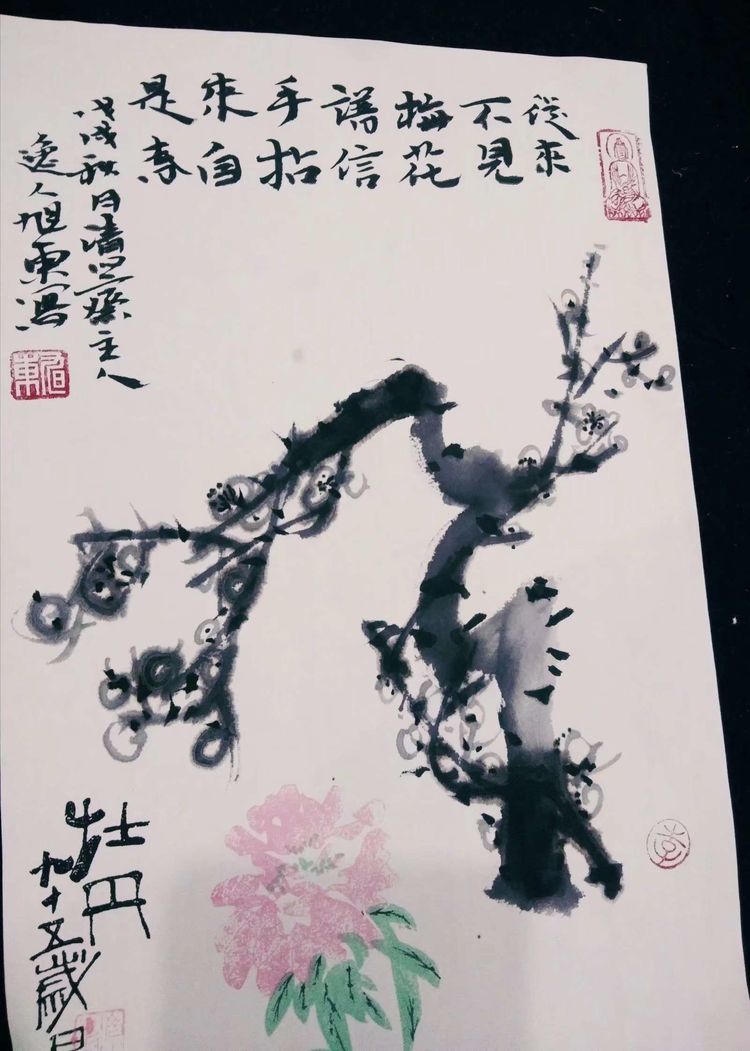 從來
不見
梅花
譜信
手拈
來自
是
戊戌秋月清齋主人
逸人旭東寫
旭東
牡丹
九十五歲